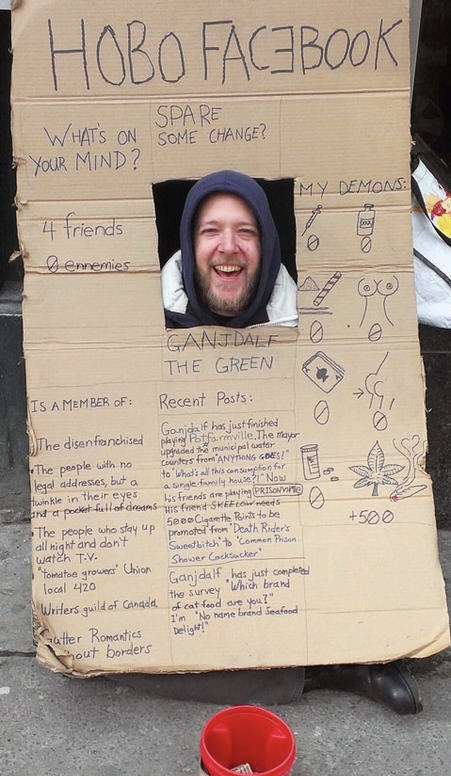 HOBO FACEBOOK
WHAT'S ON
YOUR MIND?
SPARE
SOME CHANGE?
4 friends
0 ennemies
MY DEMONS:
0 0
0 0
0 0
0
+500
GANJDALF
THE GREEN
IS A MEMBER OF:
The disenfranchised
The people with no
legal addresses, but a
twinkle in their eyes
and a pocket full of downers
The people who stay up
all night and don't
watch T.V.
"Tomatoe growers" Union
local 420
Writers guild of Canada
Gutter Romantics
without borders
Recent Posts:
Ganjdalf has just finished
playing Potfarmville. The mayor
upgraded the municipal water
counters from "ANYTHING GOES!"
to "What's all this consumption for
a single family house?!" Now
his friends are playing PRISONVILLE
His friend SKEELOW needs
5000 Cigarette Points to be
promoted from "Death Rider's
Sweetbitch" to "Common Prison
Shower Cocksucker"
Ganjdalf has just completed
the survey "Which brand
of cat food are you?"
I'm "No name brand Seafood
Delight!"